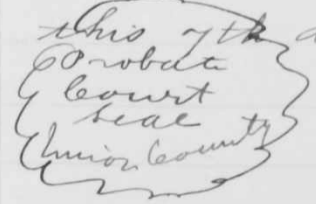 this 7th
Probate
Court
seal
Union County